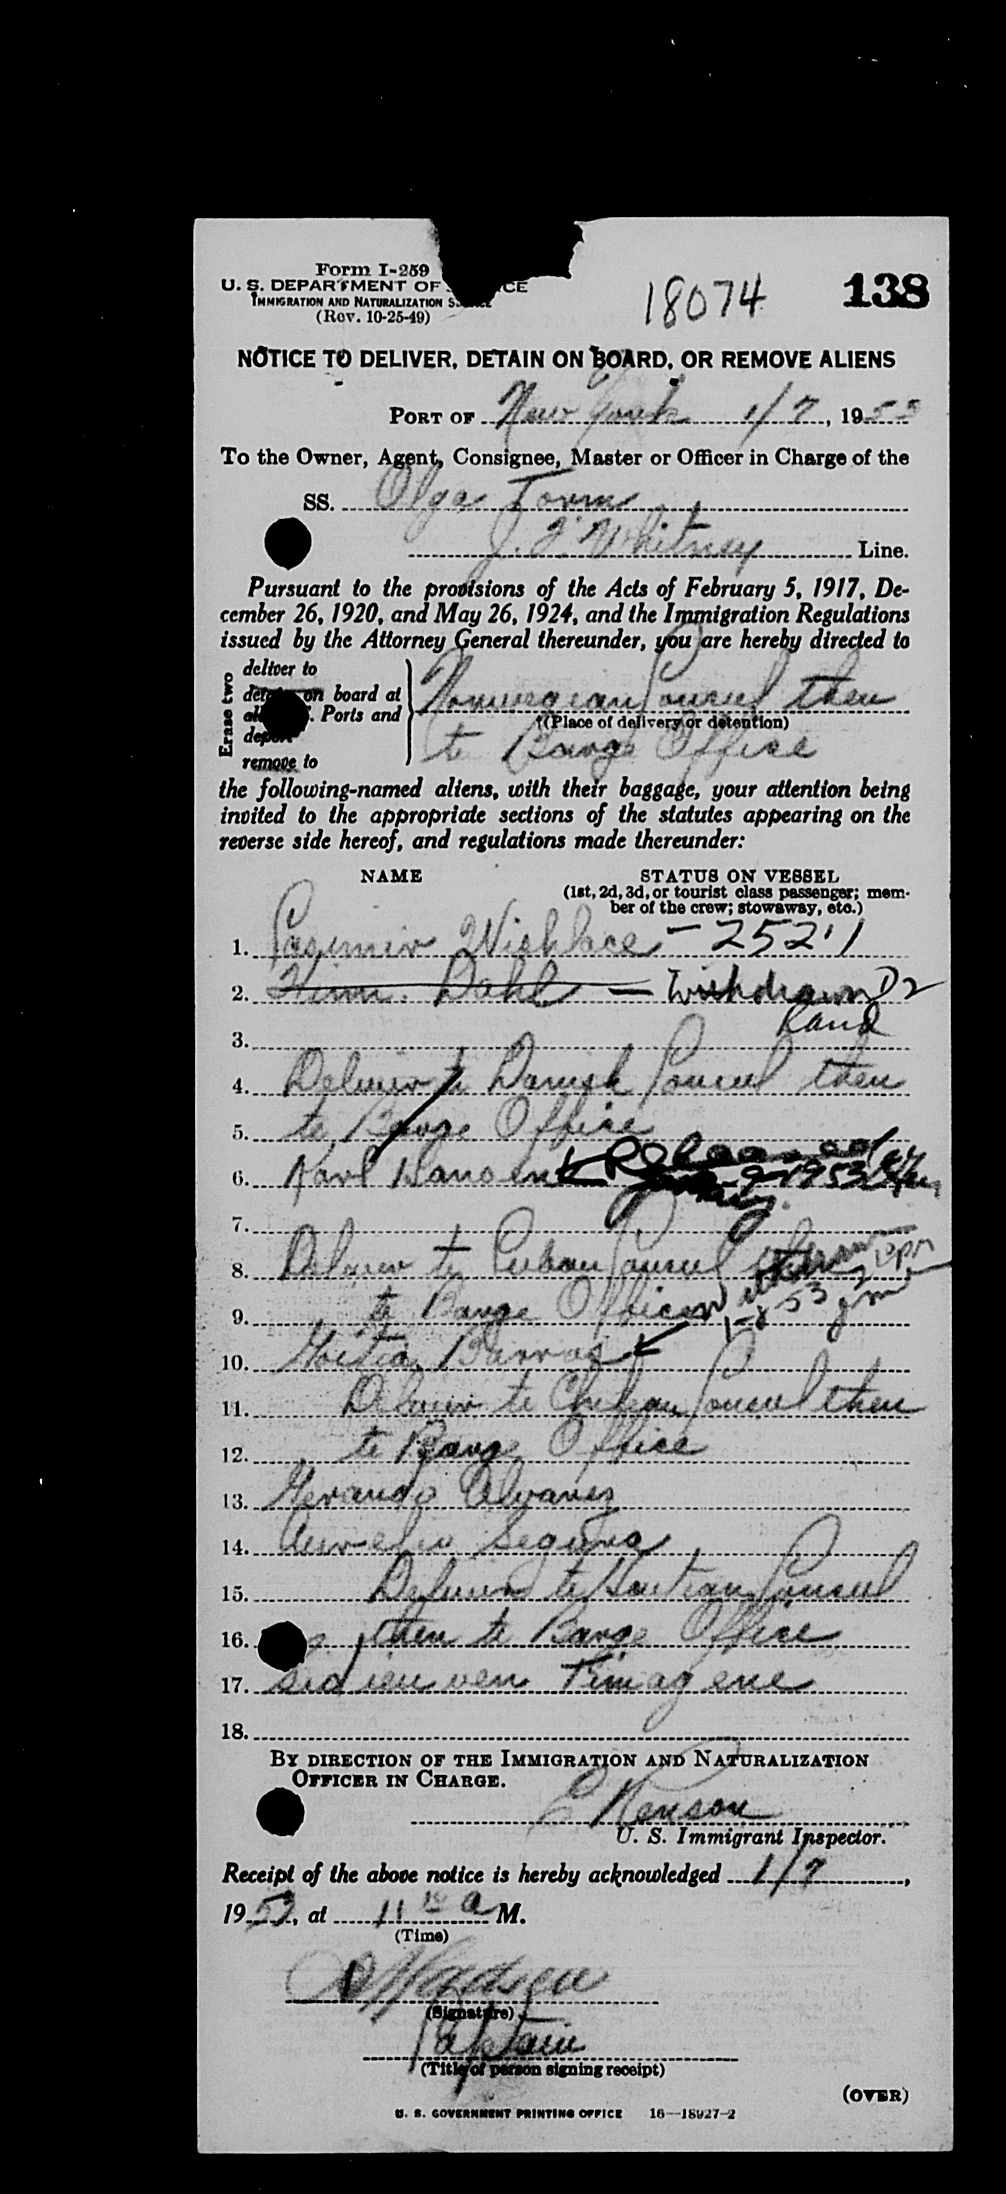 Form I-259
U. S. DEPARTMENT OF
IMMIGRATION AND NATURALIZATION
(Rev. 10-25-49)
18074
138
NOTICE TO DELIVER, DETAIN ON BOARD, OR REMOVE ALIENS
PORT OF New York 1/7, 1953
To the Owner, Agent, Consignee, Master or Officer in Charge of the
SS. Olga Torm
J. F. Whitney Line.
Pursuant to the provisions of the Acts of February 5, 1917, De-
cember 26, 1920, and May 26, 1924, and the Immigration Regulations
issued by the Attorney General thereunder, you are hereby directed to
Erase two
deliver to
detain on board at
all Ports and
deport
remove to
Norwegian Consul then
†(Place of delivery or detention)
to Barge Office
the following-named aliens, with their baggage, your attention being
invited to the appropriate sections of the statutes appearing on the
reverse side hereof, and regulations made thereunder:
NAME
STATUS ON VESSEL
(1st, 2d, 3d, or tourist class passenger; mem-
ber of the crew; stowaway, etc.)
1. Casimir - 252.1
2. Dahl — Withdrawn D2
Rand
3.
4. Deliver to Danish Consul then
5. to Barge Office
6. Karl 1953
7.
8. Deliver to Cuban Consul then
9. to Barge Office Withdrawn
1-8-53
10. Barras
11. Deliver to Chilean Consul then
12. to Barge Office
13. Alvarez
14. Aurelio Segura
15. Deliver to Haitian Consul
16. then to Barge Office
17. Timagene
18.
BY DIRECTION OF THE IMMIGRATION AND NATURALIZATION
OFFICER IN CHARGE.
E Renson
U. S. Immigrant Inspector.
Receipt of the above notice is hereby acknowledged 1/7,
1953, at 11 A M.
(Time)
(Signature)
Captain
(Title of person signing receipt)
(OVER)
U. S. GOVERNMENT PRINTING OFFICE 16—18927-2